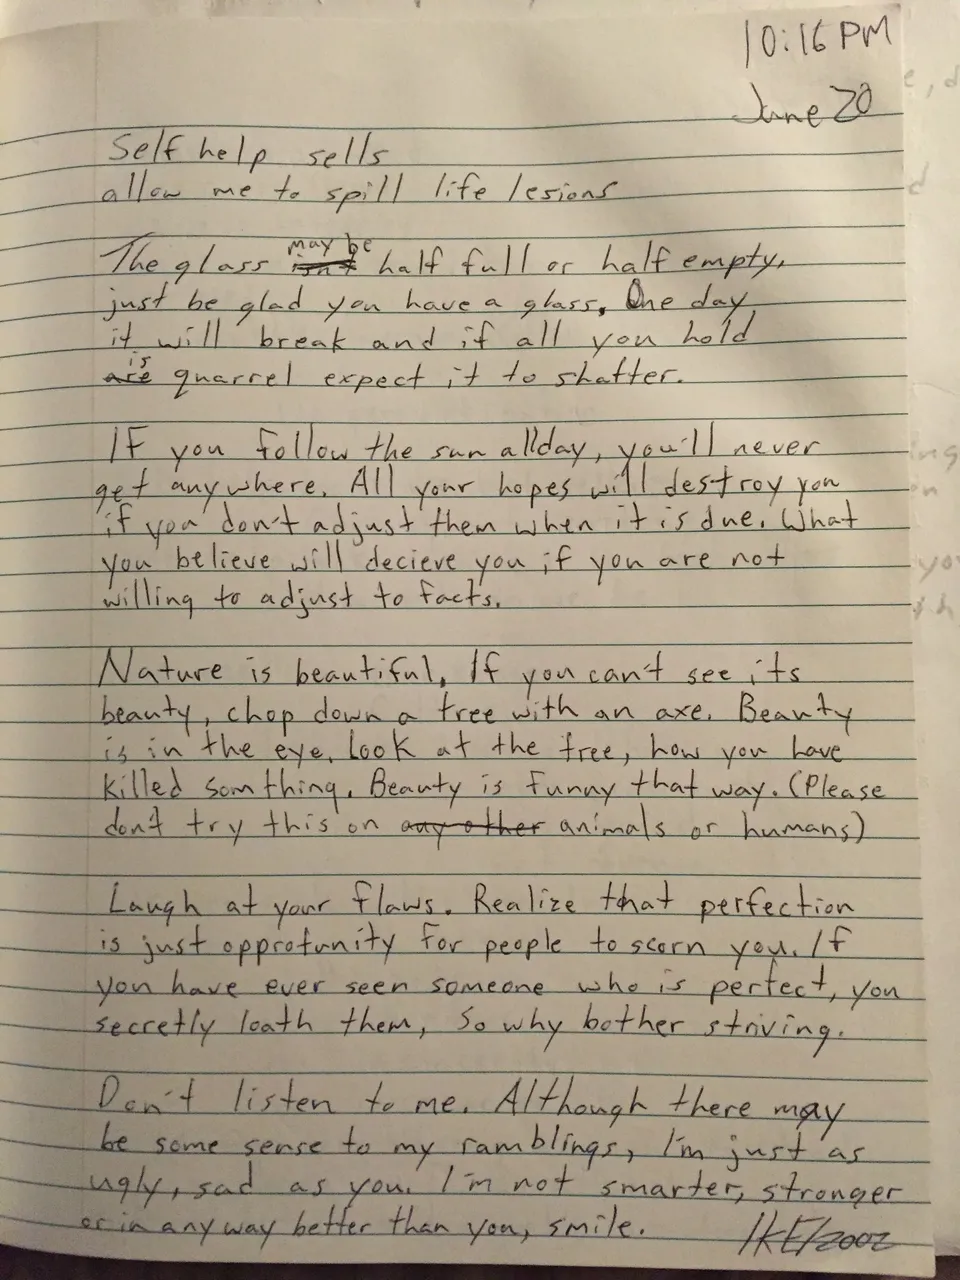 10:16 PM
June 20
Self help sells
allow me to spill life lesions
The glass may be half full or half empty,
just be glad you have a glass. One day
it will break and if all you hold
is quarrel expect it to shatter.
If you follow the sun allday, you'll never
get anywhere. All your hopes will destroy you
if you don't adjust them when it is due. What
you believe will decieve you if you are not
willing to adjust to facts.
Nature is beautiful. If you can't see its
beauty, chop down a tree with an axe. Beauty
is in the eye. Look at the tree, how you have
killed somthing. Beauty is funny that way. (Please
don't try this on any other animals or humans)
Laugh at your flaws. Realize that perfection
is just opprotunity for people to scorn you. If
you have ever seen someone who is perfect, you
secretly loath them, so why bother striving.
Don't listen to me. Although there may
be some sense to my ramblings, I'm just as
ugly, sad as you. I'm not smarter, stronger
or in any way better than you, smile.
IKE/2002